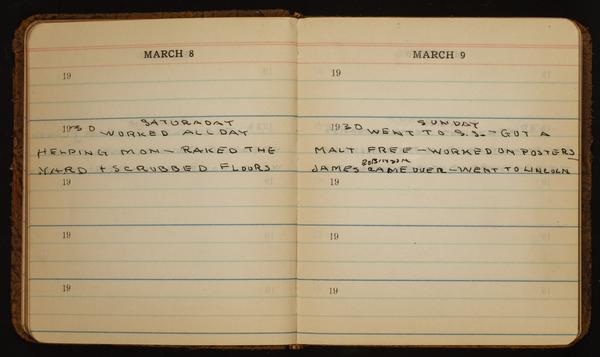 MARCH 8
19
SATURADAY
1930 WORKED ALL DAY
HELPING MOM - RAKED THE
YARD + SCRUBBED FLOORS
19
19
19
MARCH 9
19
SUNDAY
1930 WENT TO S.S. - GOT A
MALT FREE - WORKED ON POSTERS
ROBINSON
JAMES CAME OVER - WENT TO LINCOLN
19
19
19